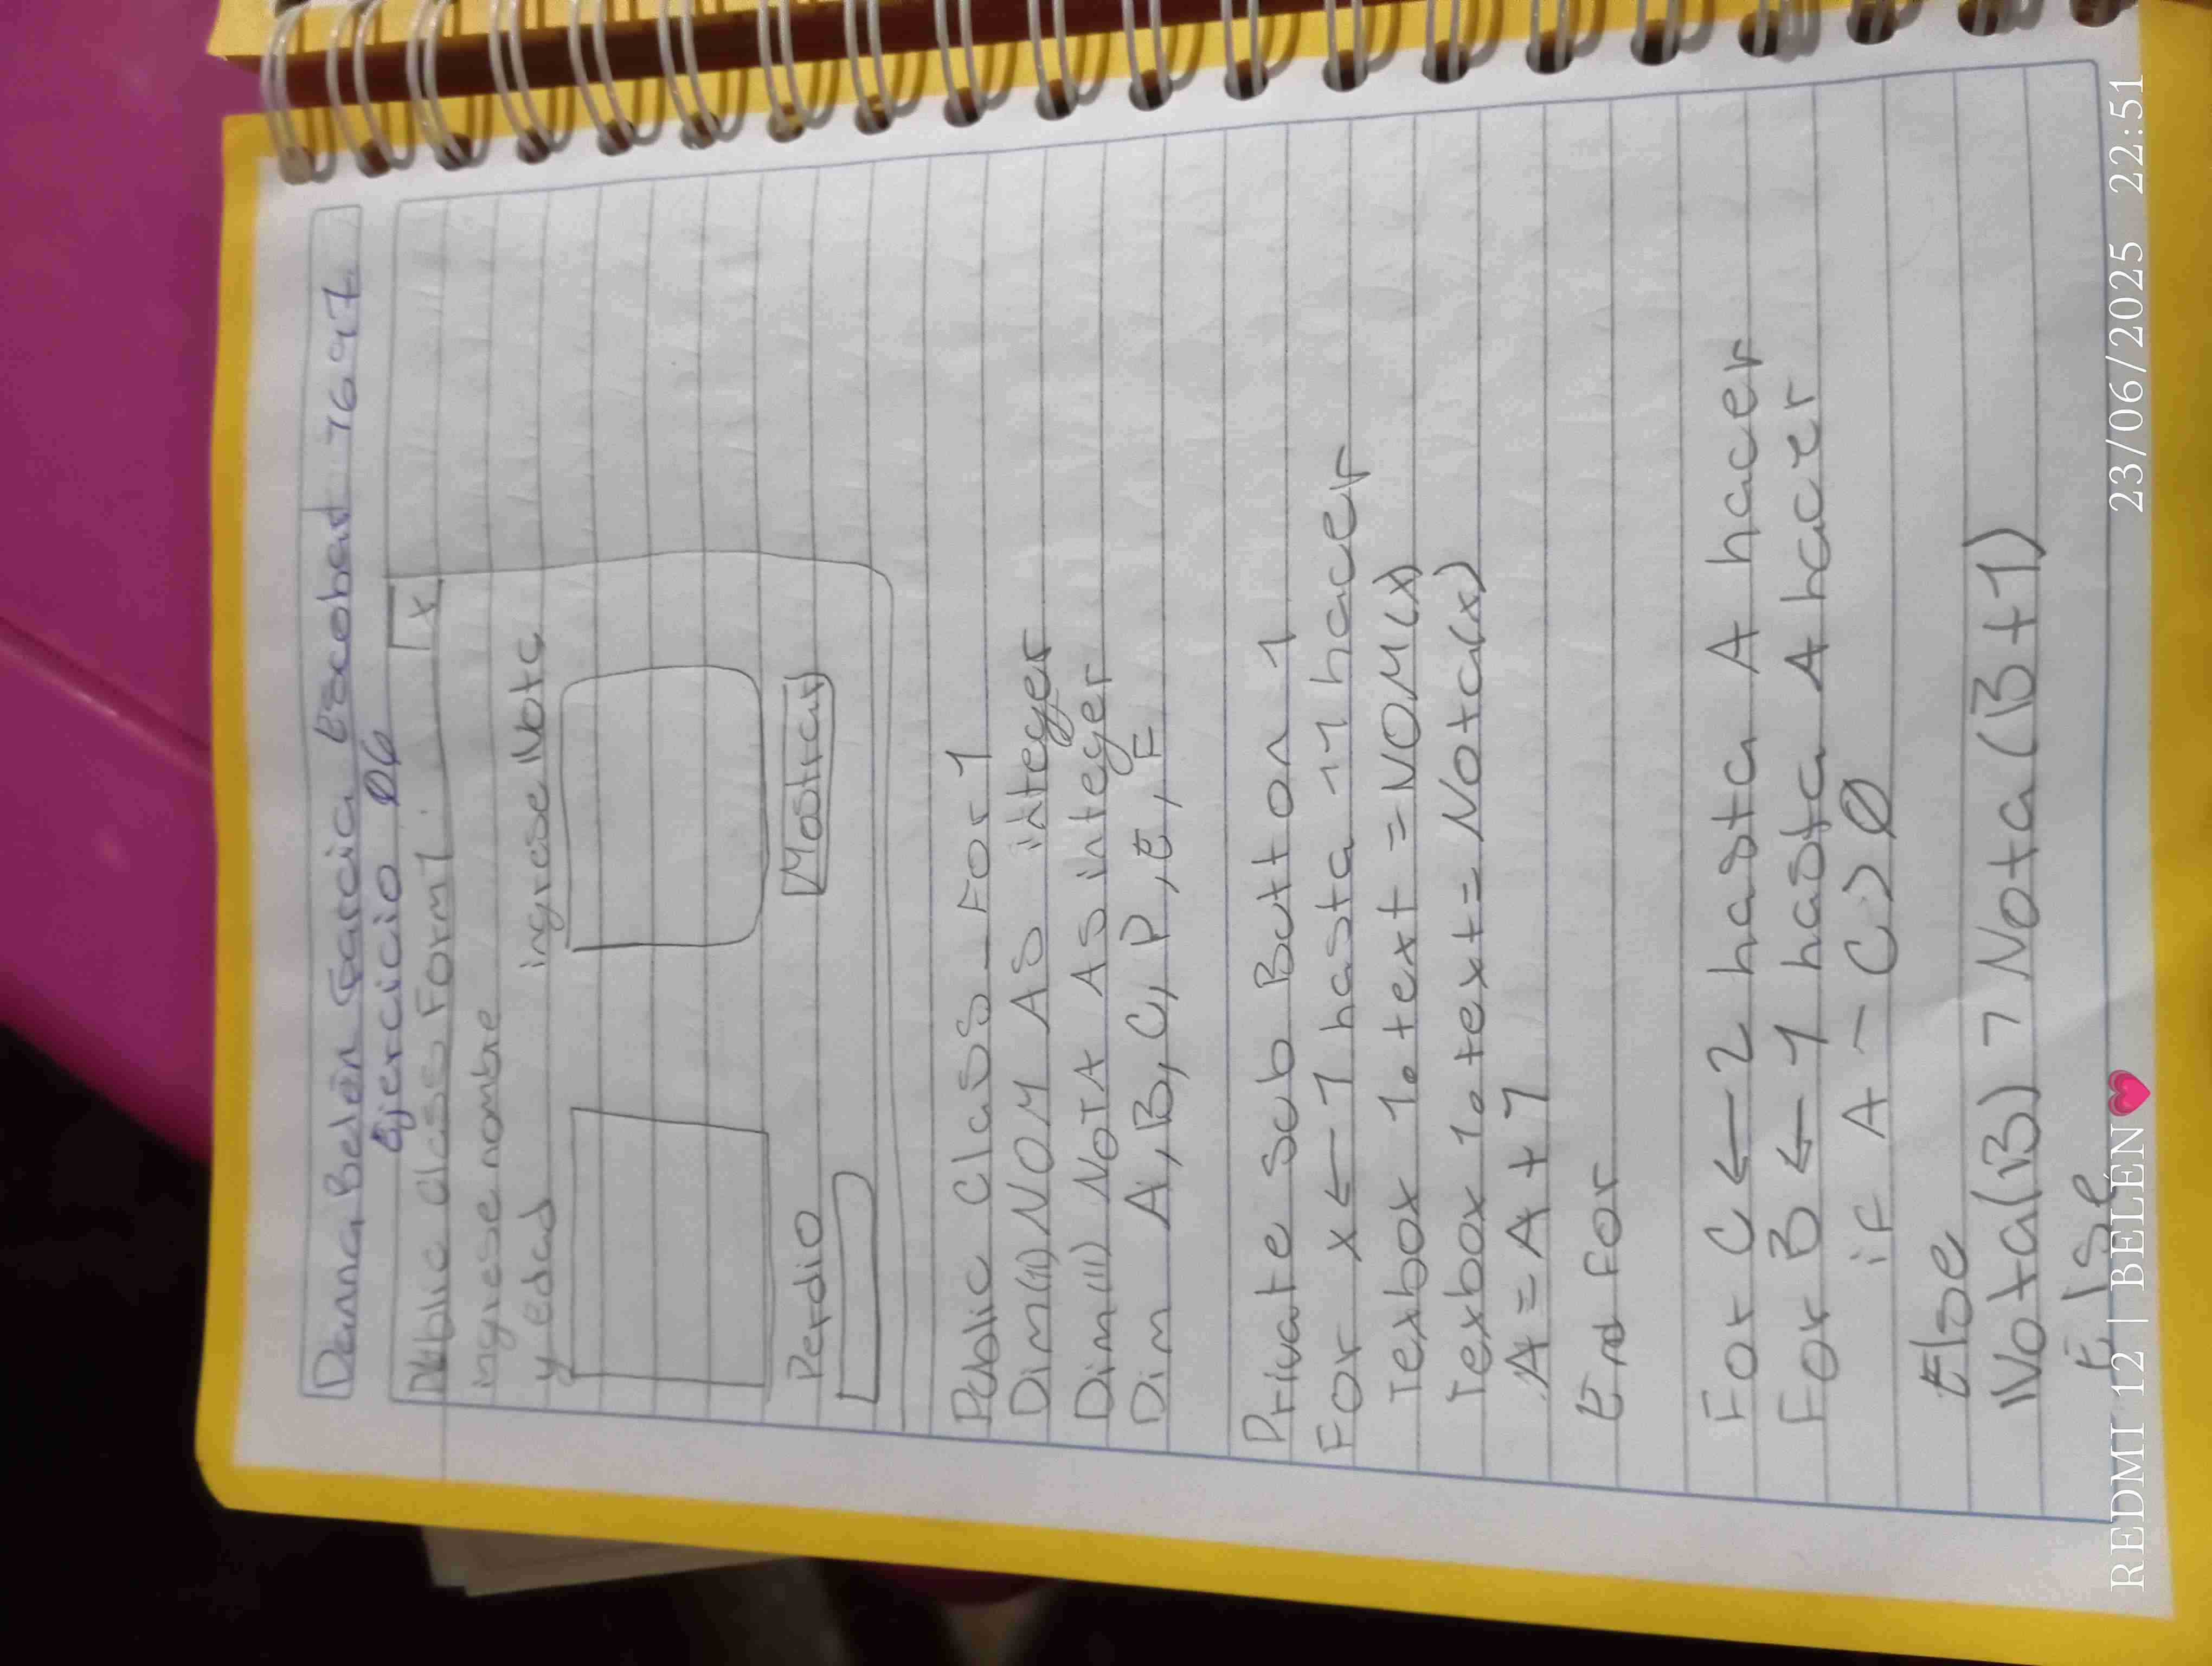 Danna Belén García Escobar 7697
Ejercicio Ø6
Public Class Form1
x
ingrese nombre
y edad
ingrese Nota
Perdio
Mostrar
Public Class For 1
Dim(11) NOM AS integer
Dim(11) NOTA AS integer
Dim A, B, C, D, E, F
Private Sub Button 1
For x ← 1 hasta 11 hacer
Texbox 1. text = NOM(x)
Texbox 1. text = Nota(x)
A = A + 1
End For
For C ← 2 hasta A hacer
For B ← 1 hasta A hacer
if A - C > Ø
Else
Nota(B) 7 Nota(B+1)
Else
REDMI 12 | BELÉN💗
23/06/2025 22:51